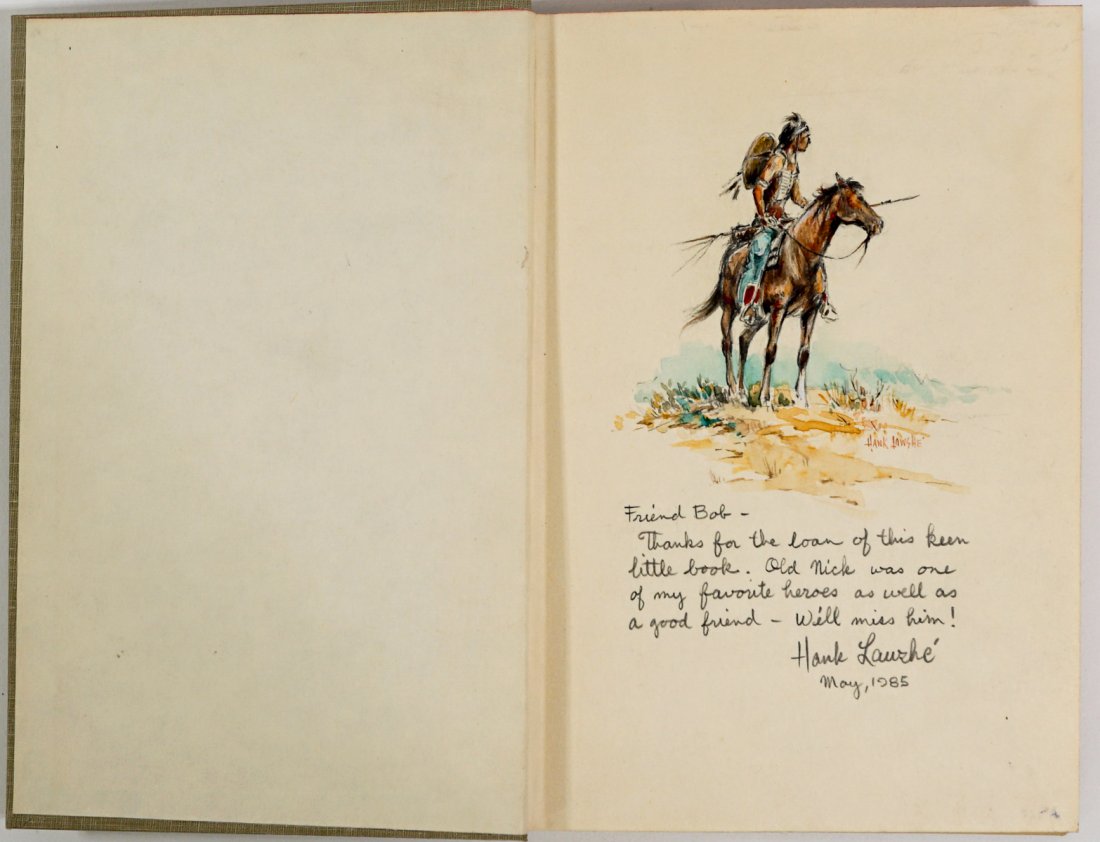 HANK LAWSHÉ
Friend Bob –
Thanks for the loan of this keen
little book. Old Nick was one
of my favorite heroes as well as
a good friend – We'll miss him!
Hank Lawshé
May, 1985